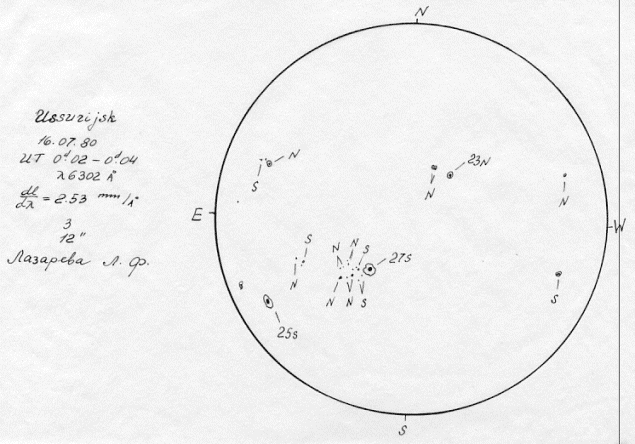 Ussurijsk
16.07.80
UT 0ᵈ.02 – 0ᵈ.04
λ6302 Å
dl/dλ = 2.53 mm/Å
3
12"
Лазарева Л. Ф.
N
N
S
23N
N
N
E
W
S
N
N
S
27S
N
N
N
S
S
25S
S